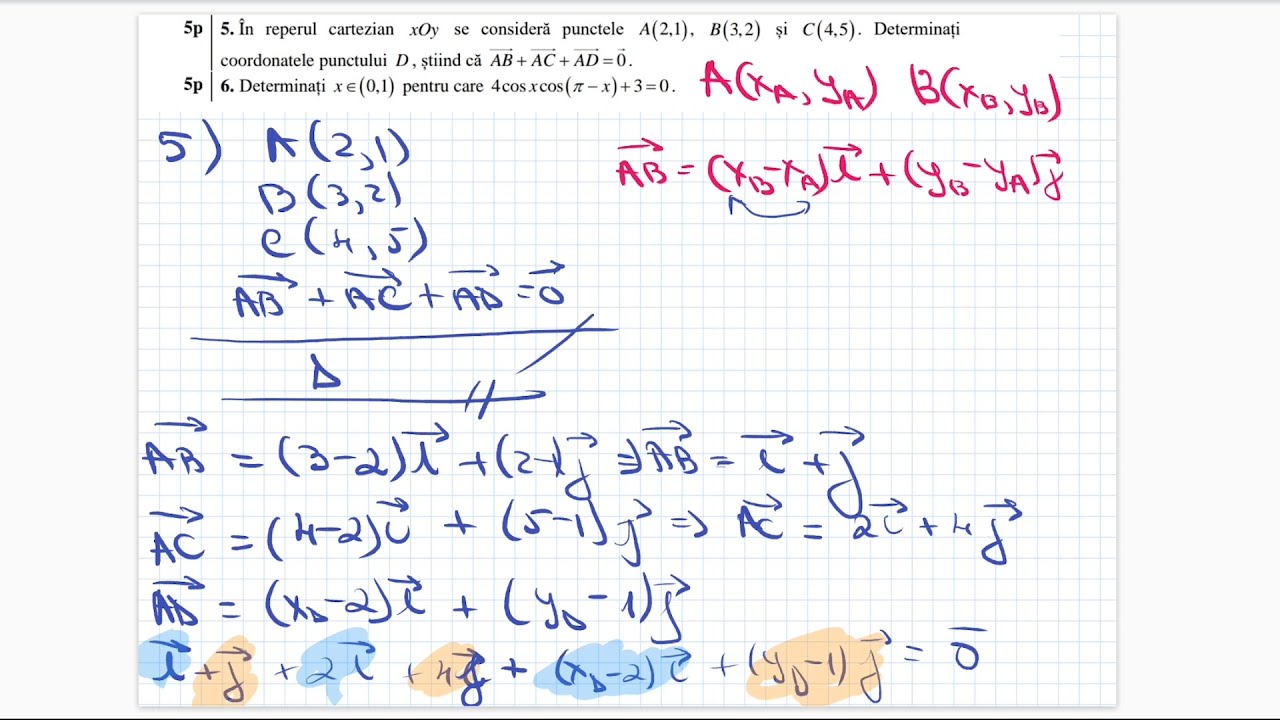 5p 5. În reperul cartezian xOy se consideră punctele A(2,1), B(3,2) și C(4,5). Determinați
coordonatele punctului D, știind că $\overrightarrow{AB}+\overrightarrow{AC}+\overrightarrow{AD}=\vec{0}$.
5p 6. Determinați x∈(0,1) pentru care 4cos x cos(π−x)+3=0.
A(x_A, y_A) B(x_B, y_B)
5) A(2,1)
$\overrightarrow{AB}=(x_B-x_A)\vec{i}+(y_B-y_A)\vec{j}$
B(3,2)
C(4,5)
$\overrightarrow{AB}+\overrightarrow{AC}+\overrightarrow{AD}=\vec{0}$
D
$\overrightarrow{AB}=(3-2)\vec{i}+(2-1)\vec{j} \Rightarrow \overrightarrow{AB}=\vec{i}+\vec{j}$
$\overrightarrow{AC}=(4-2)\vec{i}+(5-1)\vec{j} \Rightarrow \overrightarrow{AC}=2\vec{i}+4\vec{j}$
$\overrightarrow{AD}=(x_D-2)\vec{i}+(y_D-1)\vec{j}$
$\vec{i}+\vec{j}+2\vec{i}+4\vec{j}+(x_D-2)\vec{i}+(y_D-1)\vec{j}=\overline{0}$